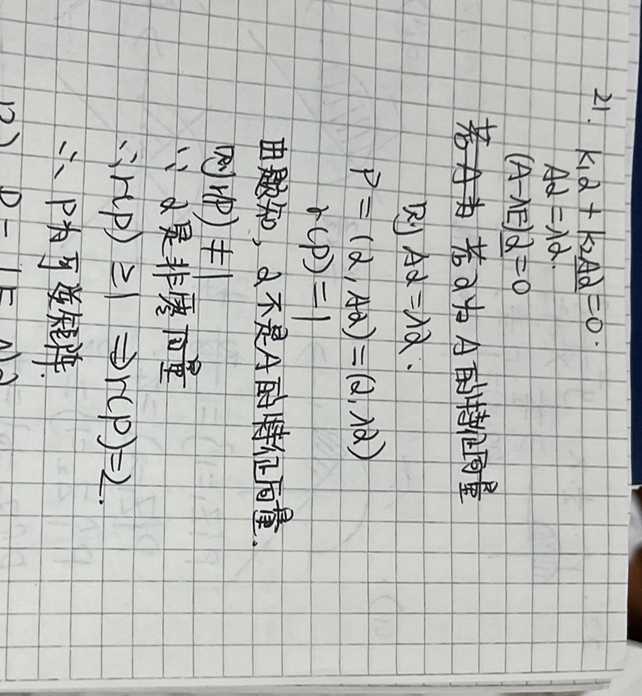 21. k₁α + k₂Aα = 0.
Aα = λα.
(A-λE)α = 0
若A为 若α为A的特征向量
则 Aα = λα.
P = (α, Aα) = (α, λα)
r(P) = 1
由题知, α不是A的特征向量.
则 r(P) ≠ 1
∵ α是非零向量
∴ r(P) ≥ 1 ⇒ r(P) = 2.
∴ P为可逆矩阵.